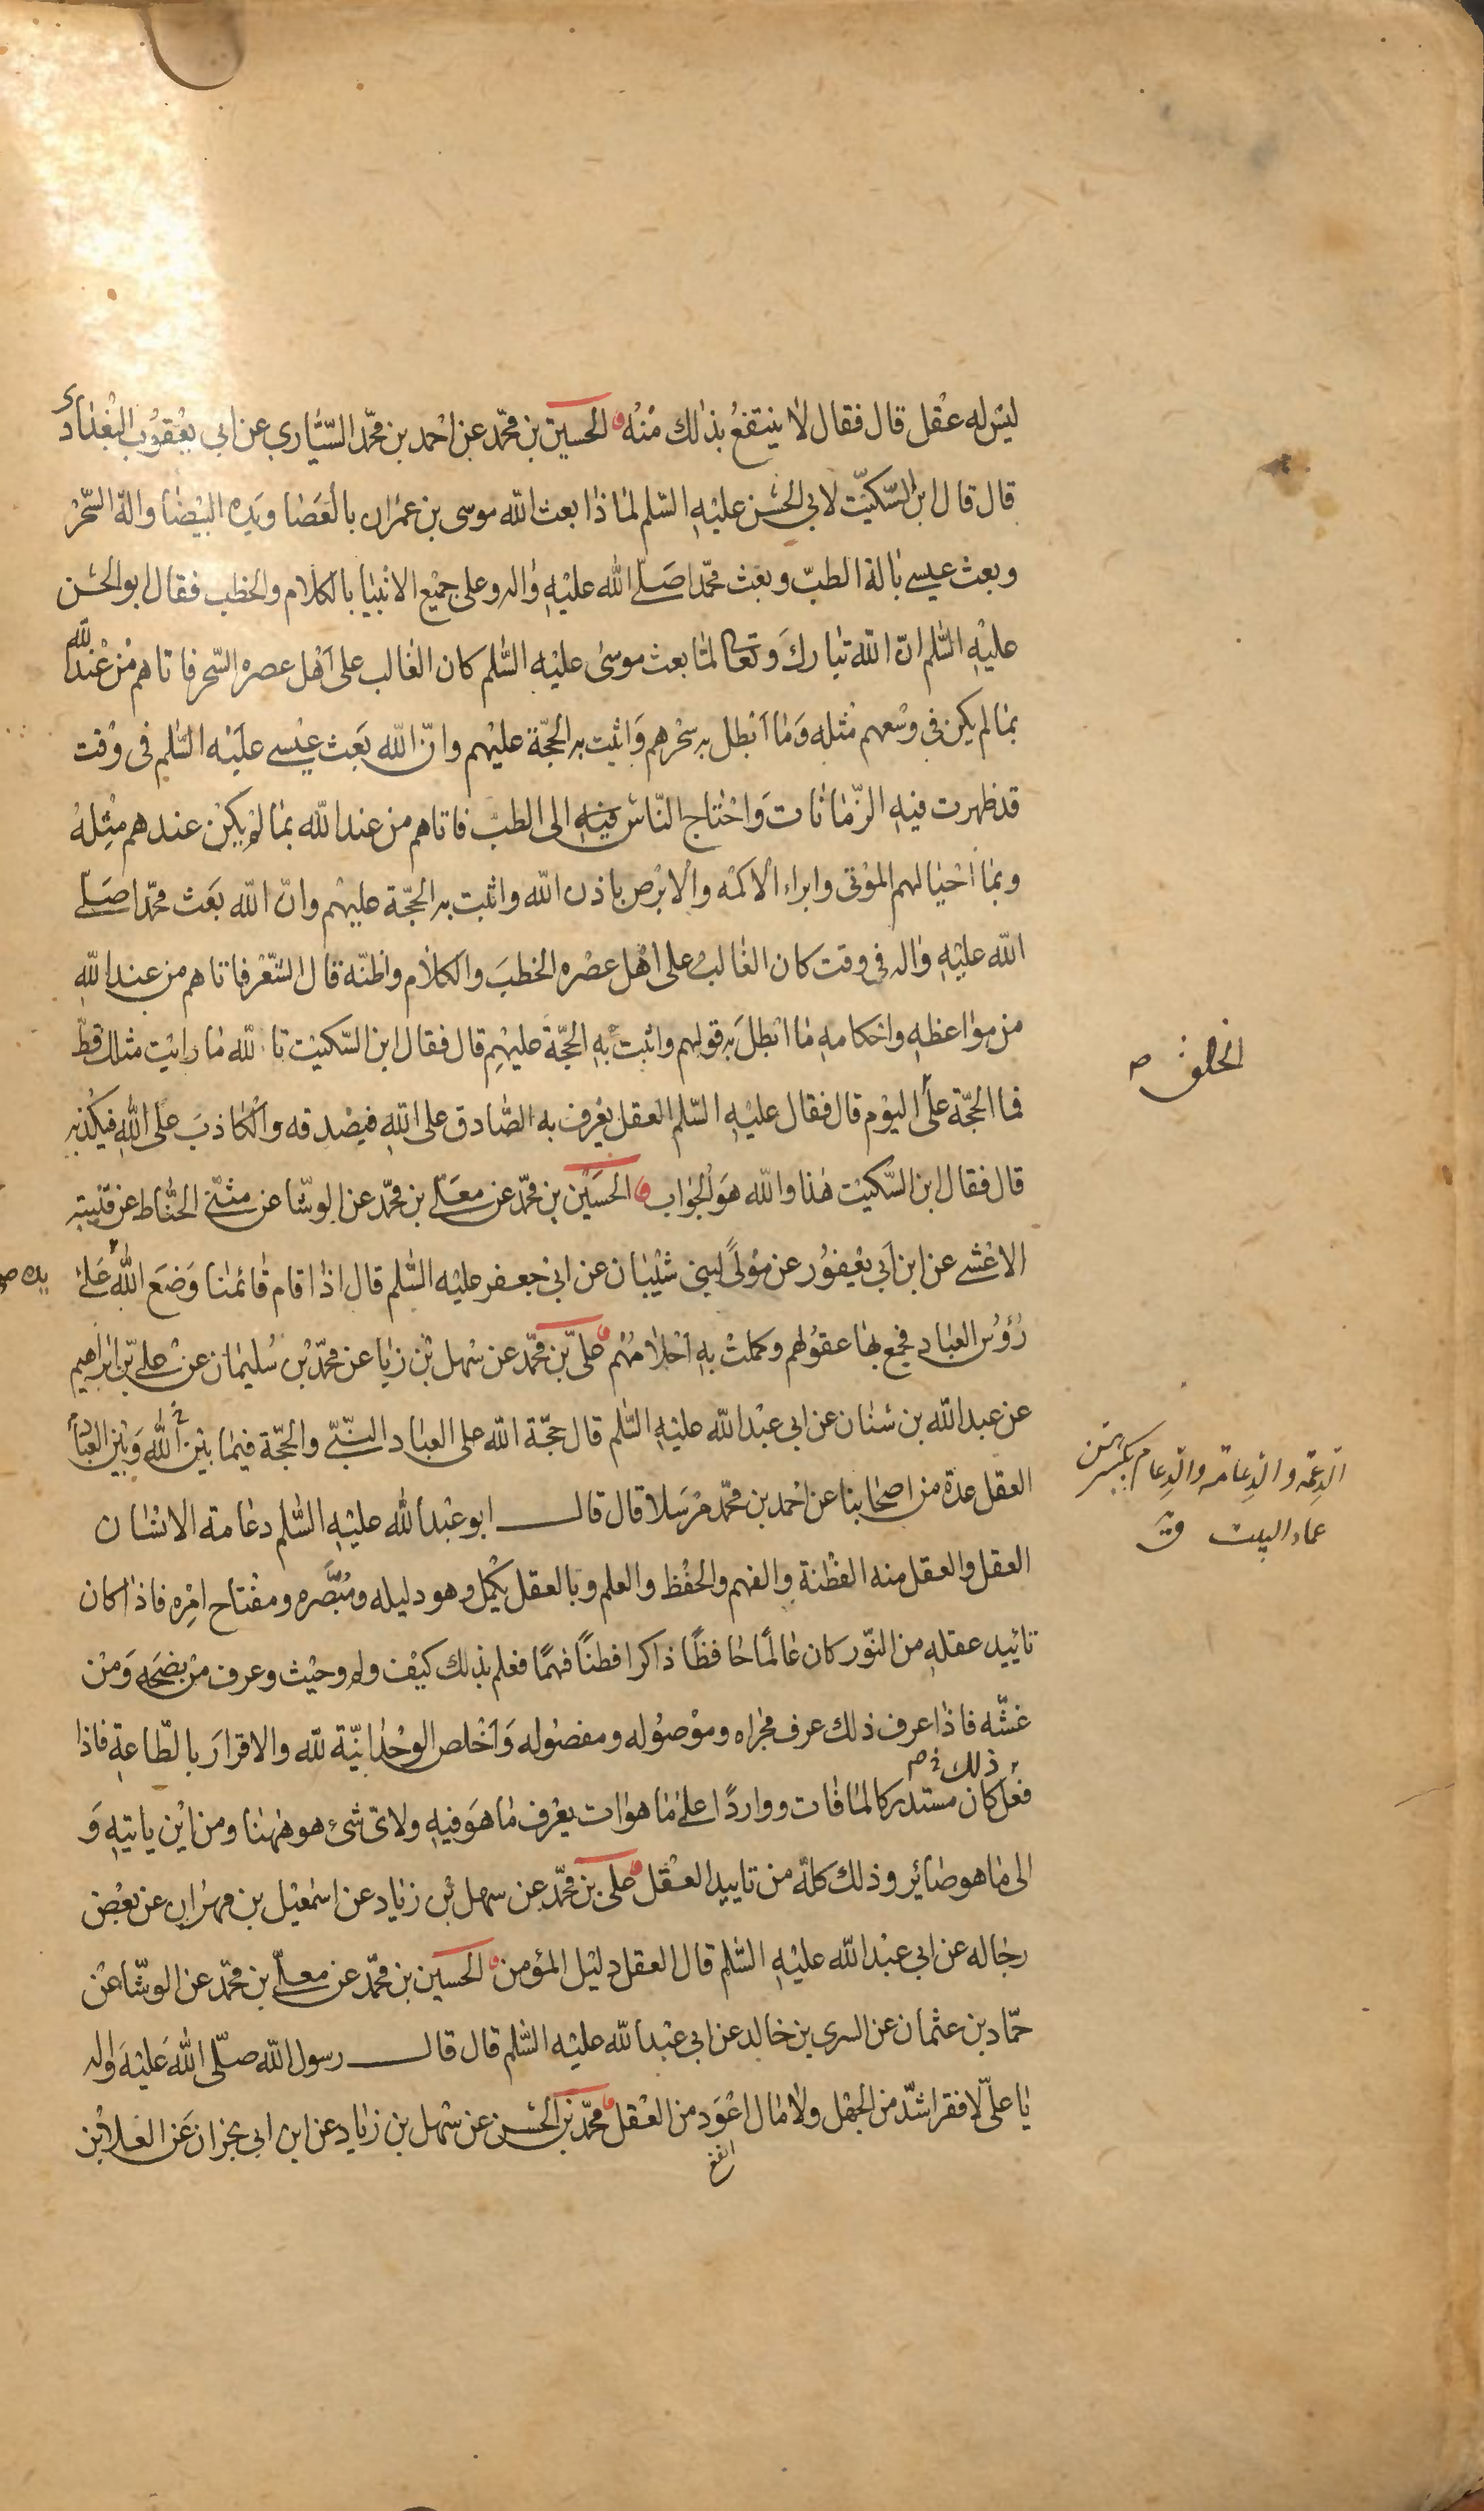 ليس له عقل قال فقال لا ينتفع بذلك منه الحسين بن محمد عن احمد بن محمد السيّاري عن ابي يعقوب البغدادي
قال قال ابن السكيّت لابي الحسن عليه السلم لماذا بعث الله موسى بن عمران بالعصا ويده البيضا والة السحر
وبعث عيسى بالة الطبّ وبعث محمّدا صلى الله عليه واله وعلى جميع الانبيا بالكلام والخطب فقال ابو الحسن
عليه السلم ان الله تبارك وتعالى لمّا بعث موسى عليه السلم كان الغالب على اهل عصره السحر فاتاهم من عند الله
بما لم يكن في وسعهم مثله وما ابطل به سحرهم واثبت به الحجّة عليهم وانّ الله بعث عيسى عليه السلم فى وقت
قد ظهرت فيه الزّمانات واحتاج النّاس فيه الى الطب فاتاهم من عند الله بما لم يكن عندهم مثله
وبما احيا لهم الموتى وابراء الاكمه والابرص باذن الله واثبت به الحجّة عليهم وانّ الله بعث محمّدا صلى
الله عليه واله فى وقت كان الغالب على اهل عصره الخطب والكلام واظنّه قال الشّعر فاتاهم من عند الله
من مواعظه واحكامه ما ابطل به قولهم واثبت به الحجّة عليهم قال فقال ابن السّكيت تالله ما رايت مثلك قطّ
الخلق خ ص
فما الحجّة على اليوم قال فقال عليه السّلم العقل يعرف به الصّادق على الله فيصدقه والكاذب على الله فيكذبه
قال فقال ابن السّكيت هذا والله هو الجواب الحسين بن محمّد عن معلى بن محمّد عن الوشّا عن مثنى الحنّاط عن قتيبة
الاعشى عن ابن ابي يعفور عن مولى لبني شيبان عن ابي جعفر عليه السّلم قال اذا قام قائمنا وضع الله على
يده ص
رؤوس العباد فجمع بها عقولهم وكملت به احلامهم علي بن محمّد عن سهل بن زيا عن محمّد بن سليمان عن علي بن ابراهيم
عن عبد الله بن سنان عن ابي عبد الله عليه السّلم قال حجّة الله على العباد النبّي والحجّة فيما بين الله وبين العباد
العقل عدة من اصحابنا عن احمد بن محمّد مرسلا قال قال ابو عبد الله عليه السّلم دعامة الانسان
الدعمة والدعامة والدعام بكسرهن
عماد البيت ق
العقل والعقل منه الفطنة والفهم والحفظ والعلم وبالعقل يكمل وهو دليله ومبصّره ومفتاح امره فاذا كان
تائيد عقله من النّور كان عالمًا حافظًا ذاكرا فطنًا فهمًا فعلم بذلك كيف ولم وحيث وعرف من نصحه ومن
غشّه فاذا عرف ذلك عرف مجراه وموصوله ومفصوله واخلص الوحدانيّة لله والاقرار بالطّاعة فاذا
ذلك خ ص
فعل كان مستدركا لما فات وواردًا على ما هو ات يعرف ما هو فيه ولاىّ شئ هو ههنا ومن اين ياتيه و
الى ما هو صائر وذلك كلّه من تاييد العقل علي بن محمّد عن سهل بن زياد عن اسمعيل بن مهران عن بعض
رجاله عن ابي عبد الله عليه السّلم قال العقل دليل المؤمن الحسين بن محمّد عن معلّى بن محمّد عن الوشّا عن
حمّاد بن عثمان عن السري بن خالد عن ابي عبد الله عليه السّلم قال قال رسول الله صلّى الله عليه واله
يا علىّ لا فقر اشدّ من الجهل ولا مال اعود من العقل محمّد بن الحسن عن سهل بن زياد عن ابن ابي نجران عن العلا بن
انفع